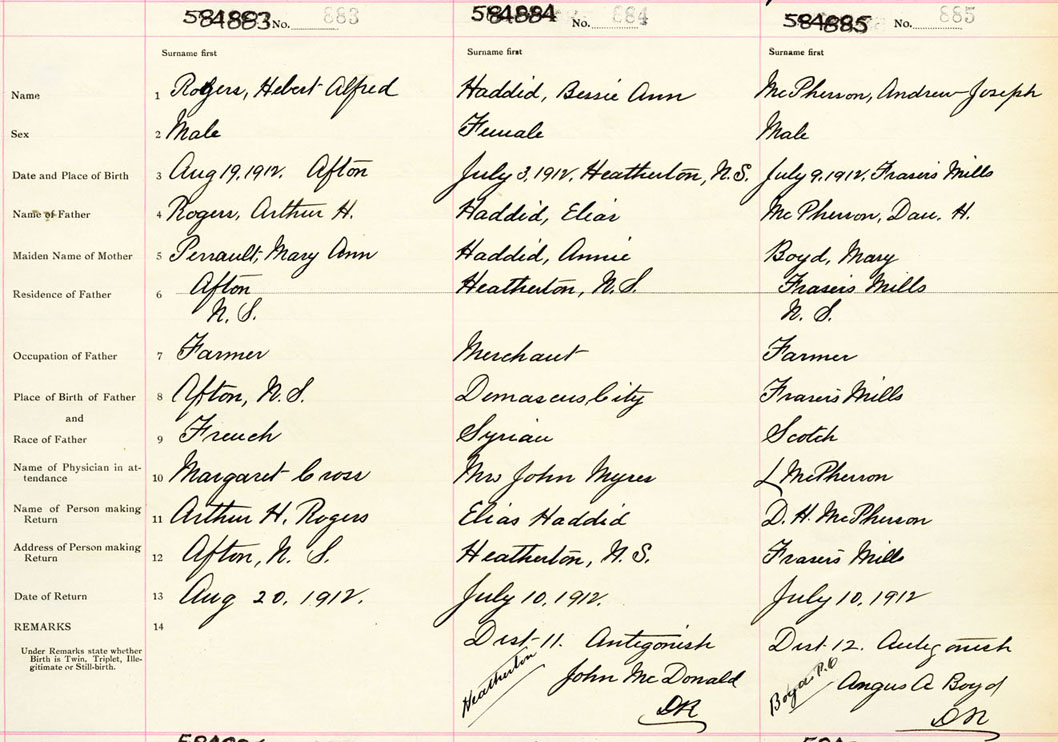 584883 No. 883 584884 No. 684 584885 No. 885
Surname first Surname first Surname first
Name 1 Rogers, Hebert Alfred Haddid, Bessie Ann McPherson, Andrew Joseph
Sex 2 Male Female Male
Date and Place of Birth 3 Aug 19, 1912. Afton July 3, 1912, Heatherton, N.S. July 9, 1912, Frasers Mills
Name of Father 4 Rogers, Arthur H. Haddid, Elias McPherson, Dan. H.
Maiden Name of Mother 5 Perrault, Mary Ann Haddid, Annie Boyd, Mary
Residence of Father 6 Afton Heatherton, N.S. Frasers Mills
N.S. N.S.
Occupation of Father 7 Farmer Merchant Farmer
Place of Birth of Father 8 Afton, N.S. Demascus City Frasers Mills
and
Race of Father 9 French Syrian Scotch
Name of Physician in at-
tendance 10 Margaret Cross Mrs John Myres L McPherson
Name of Person making
Return 11 Arthur H. Rogers Elias Haddid D. H. McPherson
Address of Person making
Return 12 Afton, N. S. Heatherton, N.S. Frasers Mills
Date of Return 13 Aug 20, 1912. July 10, 1912. July 10, 1912
REMARKS 14
Under Remarks state whether
Birth is Twin, Triplet, Ille-
gitimate or Still-birth.
Dist 11. Antigonish Dist 12. Antigonish
Heatherton John McDonald Boyds P.O Angus A Boyd
DR DR